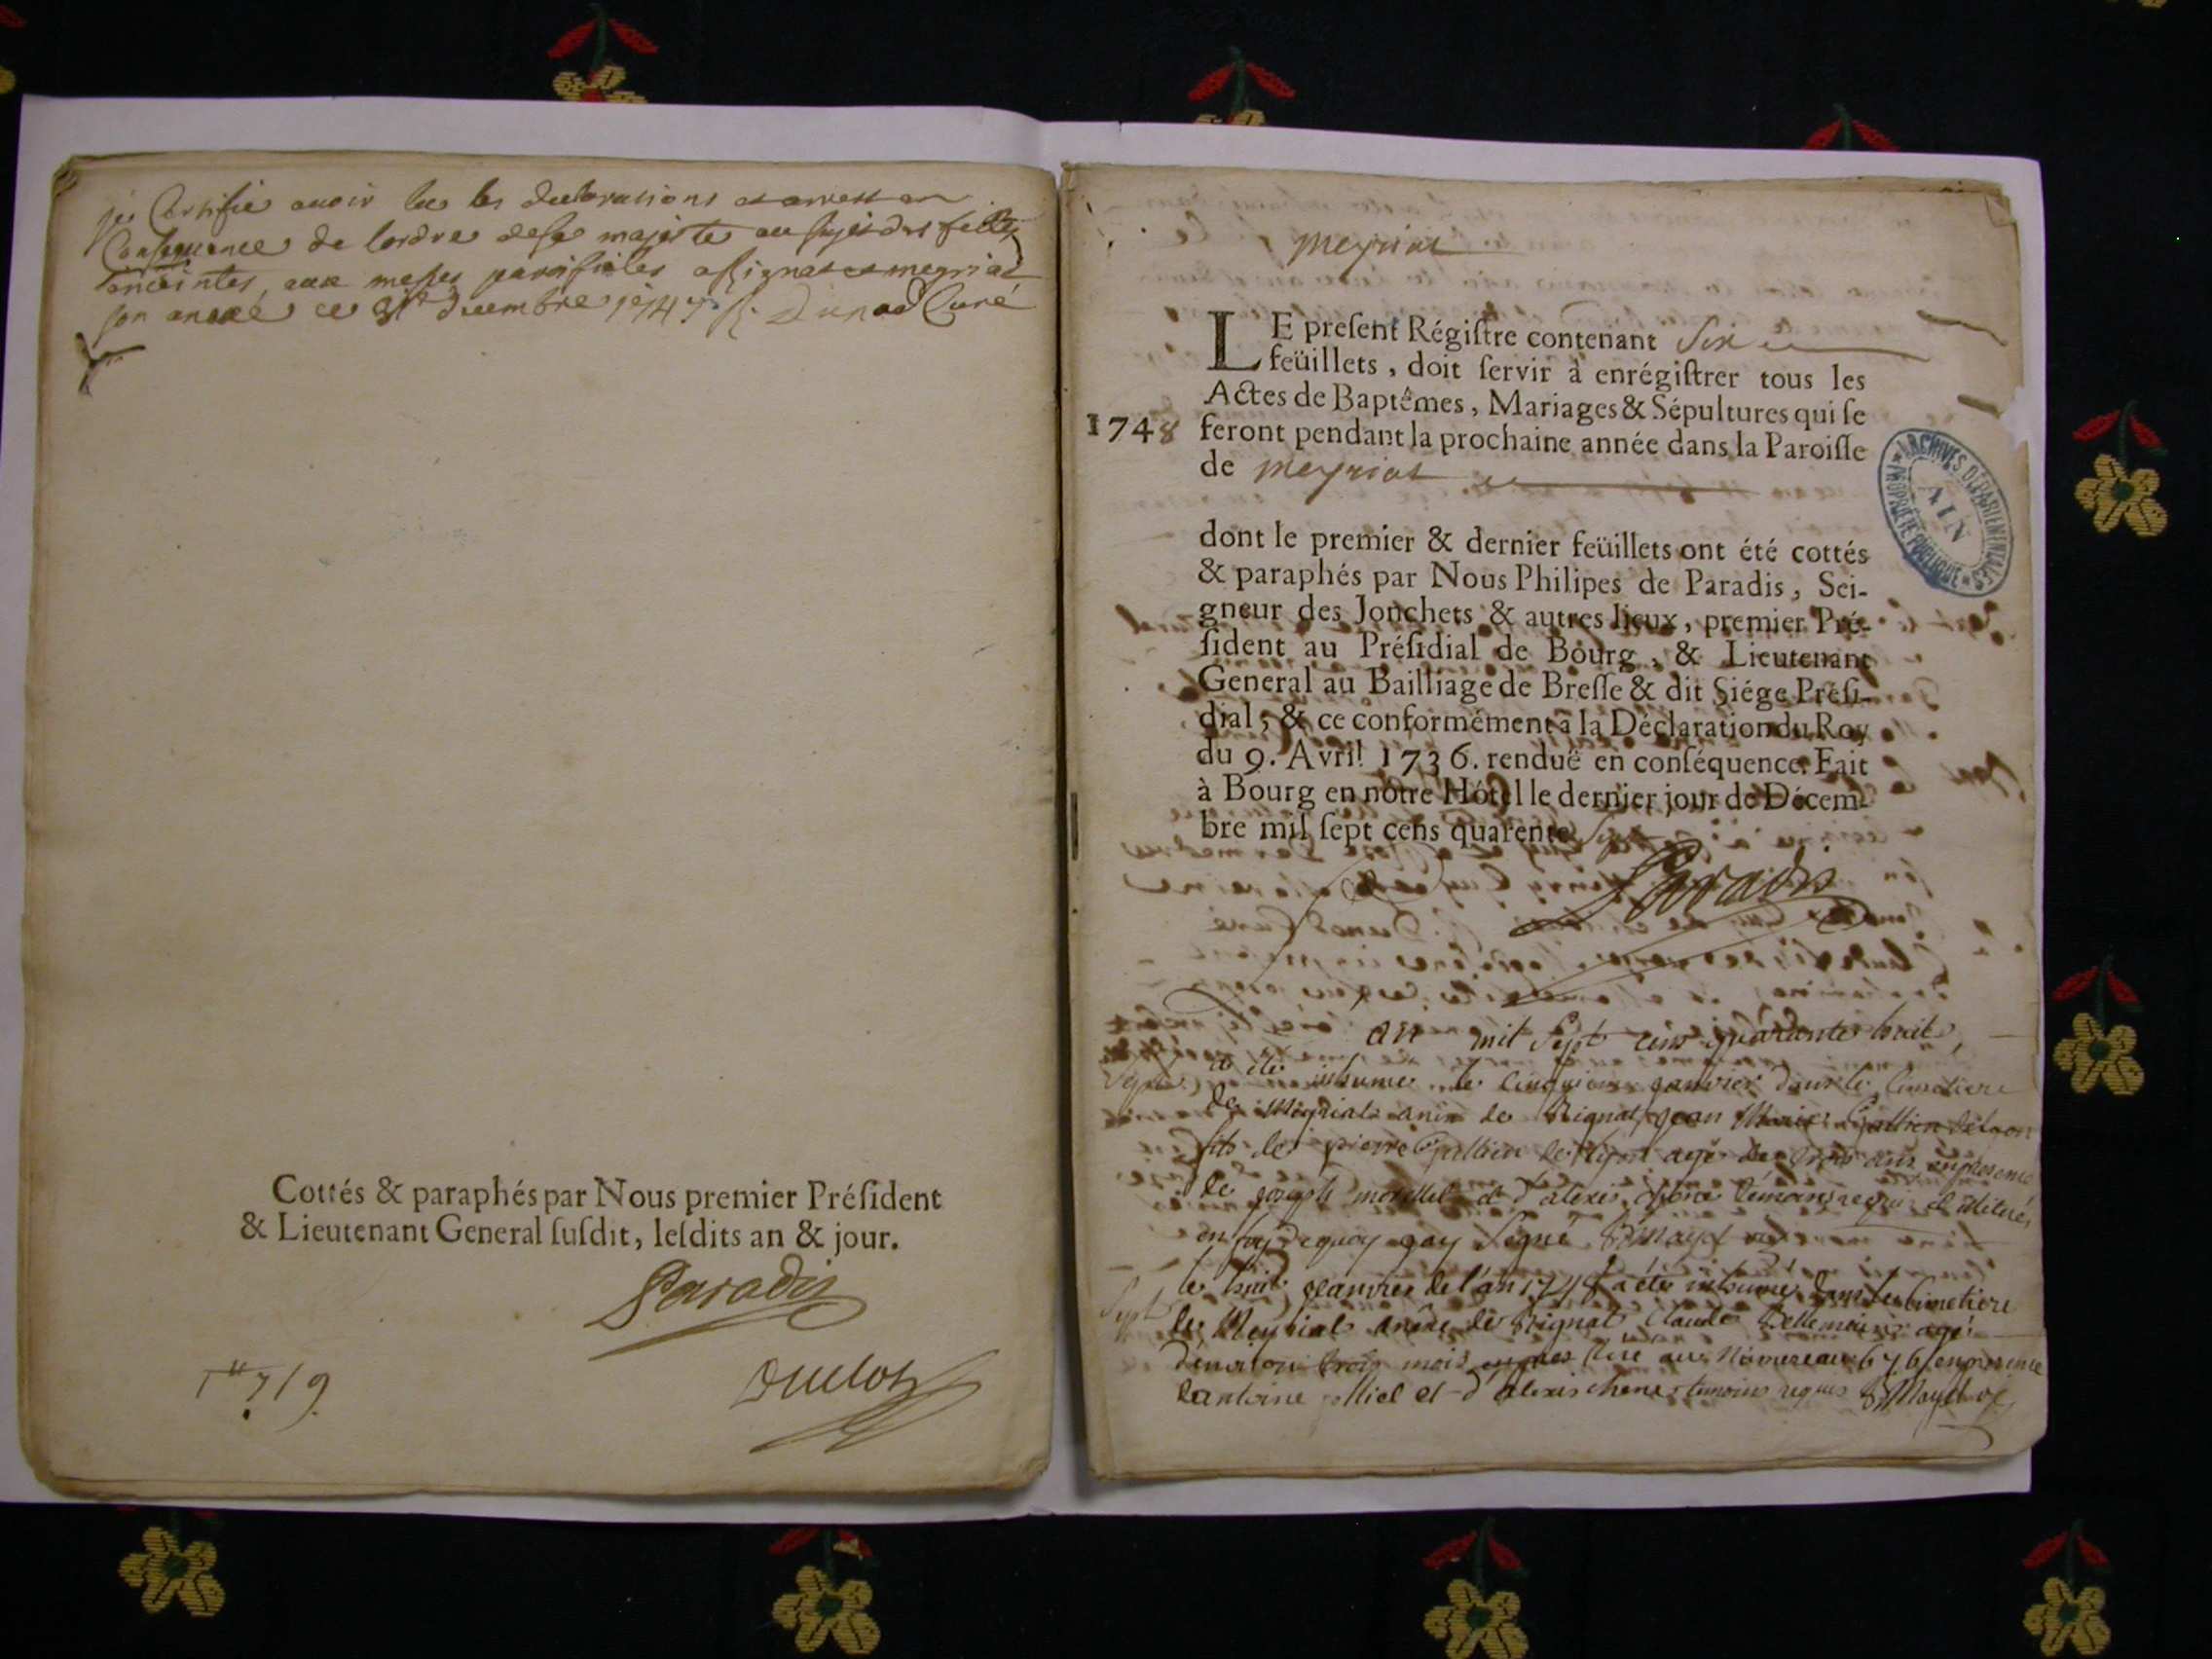 je Certifie avoir lu les declarations et arrest en
Consequence de lordre de sa majesté au sujet des filles
enceintes, aux messes paroissiales a Rignat et meyriat
son anexé ce 31e decembre 1747 Dunod Curé
Cottés & paraphés par Nous premier Préſident
& Lieutenant General ſuſdit, leſdits an & jour.
Paradis
Duclos
meyriat
LE preſent Régiſtre contenant Six
feüillets, doit ſervir à enrégiſtrer tous les
Actes de Baptêmes, Mariages & Sépultures qui ſe
1748 feront pendant la prochaine année dans la Paroiſſe
de meyriat
dont le premier & dernier feüillets ont été cottés
& paraphés par Nous Philipes de Paradis, Sei-
gneur des Jonchets & autres lieux, premier Pré-
ſident au Préſidial de Bourg, & Lieutenant
General au Bailliage de Breſſe & dit Siége Préſi-
dial; & ce conformément à la Déclaration du Roy
du 9. Avril 1736. renduë en conſéquence. Fait
à Bourg en nôtre Hôtel le dernier jour de Décem-
bre mil ſept cens quarente Sept
Paradis
an mil Sept cens quarante huit,
a été inhumé le cinquieme janvier dans le Cimetiere
de Meyriat anexe de Rignat jean Marie
fils de pierre de Lyon agé de trois ans en presence
de joseph morellet et d'alexis chene témoins requis et illiterés
en foy de quoy jay Signé
Sept le huit jeanvier de l'an 1748 a été inhumé dans le cimetiere
de Meyriat anexe de Rignat Claude Bellemain agé
d'environ trois mois au Numereau 676 en presence
d'antoine et d'alexis chene temoins requis